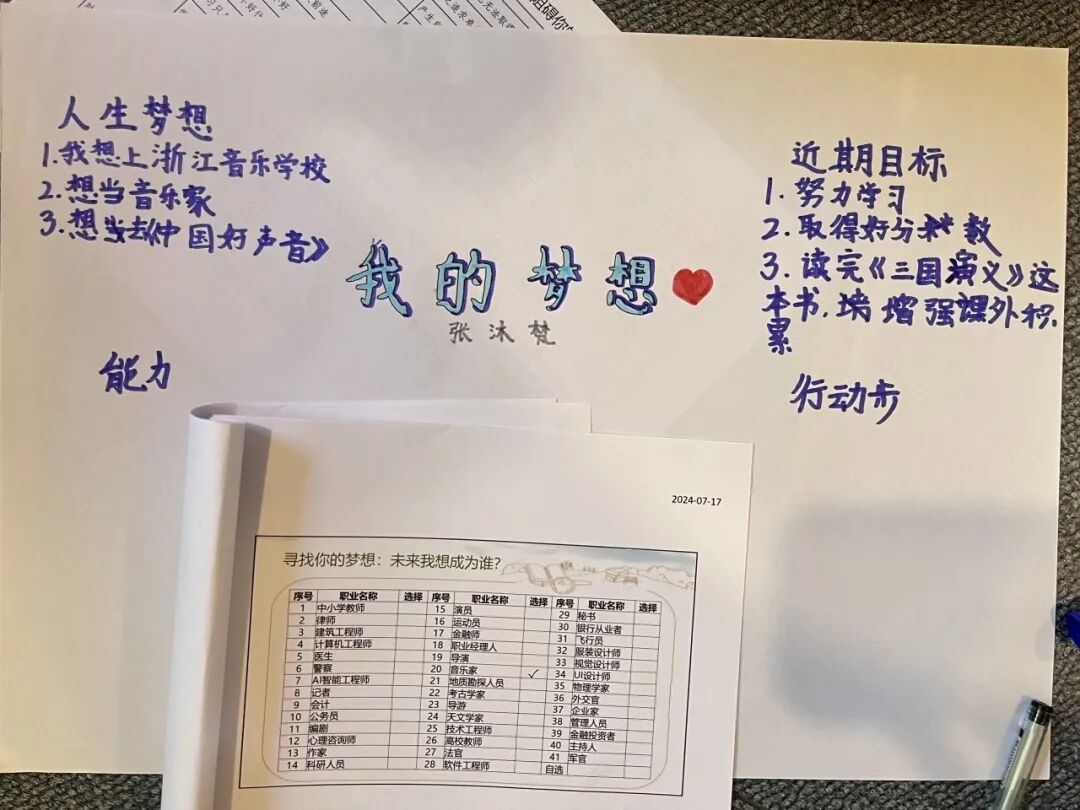 阻碍你
人生梦想
1.我想上浙江音乐学校
2.想当音乐家
3.想去《中国好声音》
我的梦想
张沐梵
近期目标
1.努力学习
2.取得好分数
3.读完《三国演义》这
本书.增强课外积
累
能力
行动步
2024-07-17
寻找你的梦想：未来我想成为谁？
序号 职业名称 选择 序号 职业名称 选择 序号 职业名称 选择
1 中小学教师 15 演员 29 秘书
2 律师 16 运动员 30 银行从业者
3 建筑工程师 17 金融师 31 飞行员
4 计算机工程师 18 职业经理人 32 服装设计师
5 医生 19 导演 33 视觉设计师
6 警察 20 音乐家 ✓ 34 UI设计师
7 AI智能工程师 21 地质勘探人员 35 物理学家
8 记者 22 考古学家 36 外交官
9 会计 23 导游 37 企业家
10 公务员 24 天文学家 38 管理人员
11 编剧 25 技术工程师 39 金融投资者
12 心理咨询师 26 高校教师 40 主持人
13 作家 27 法官 41 军官
14 科研人员 28 软件工程师 自选